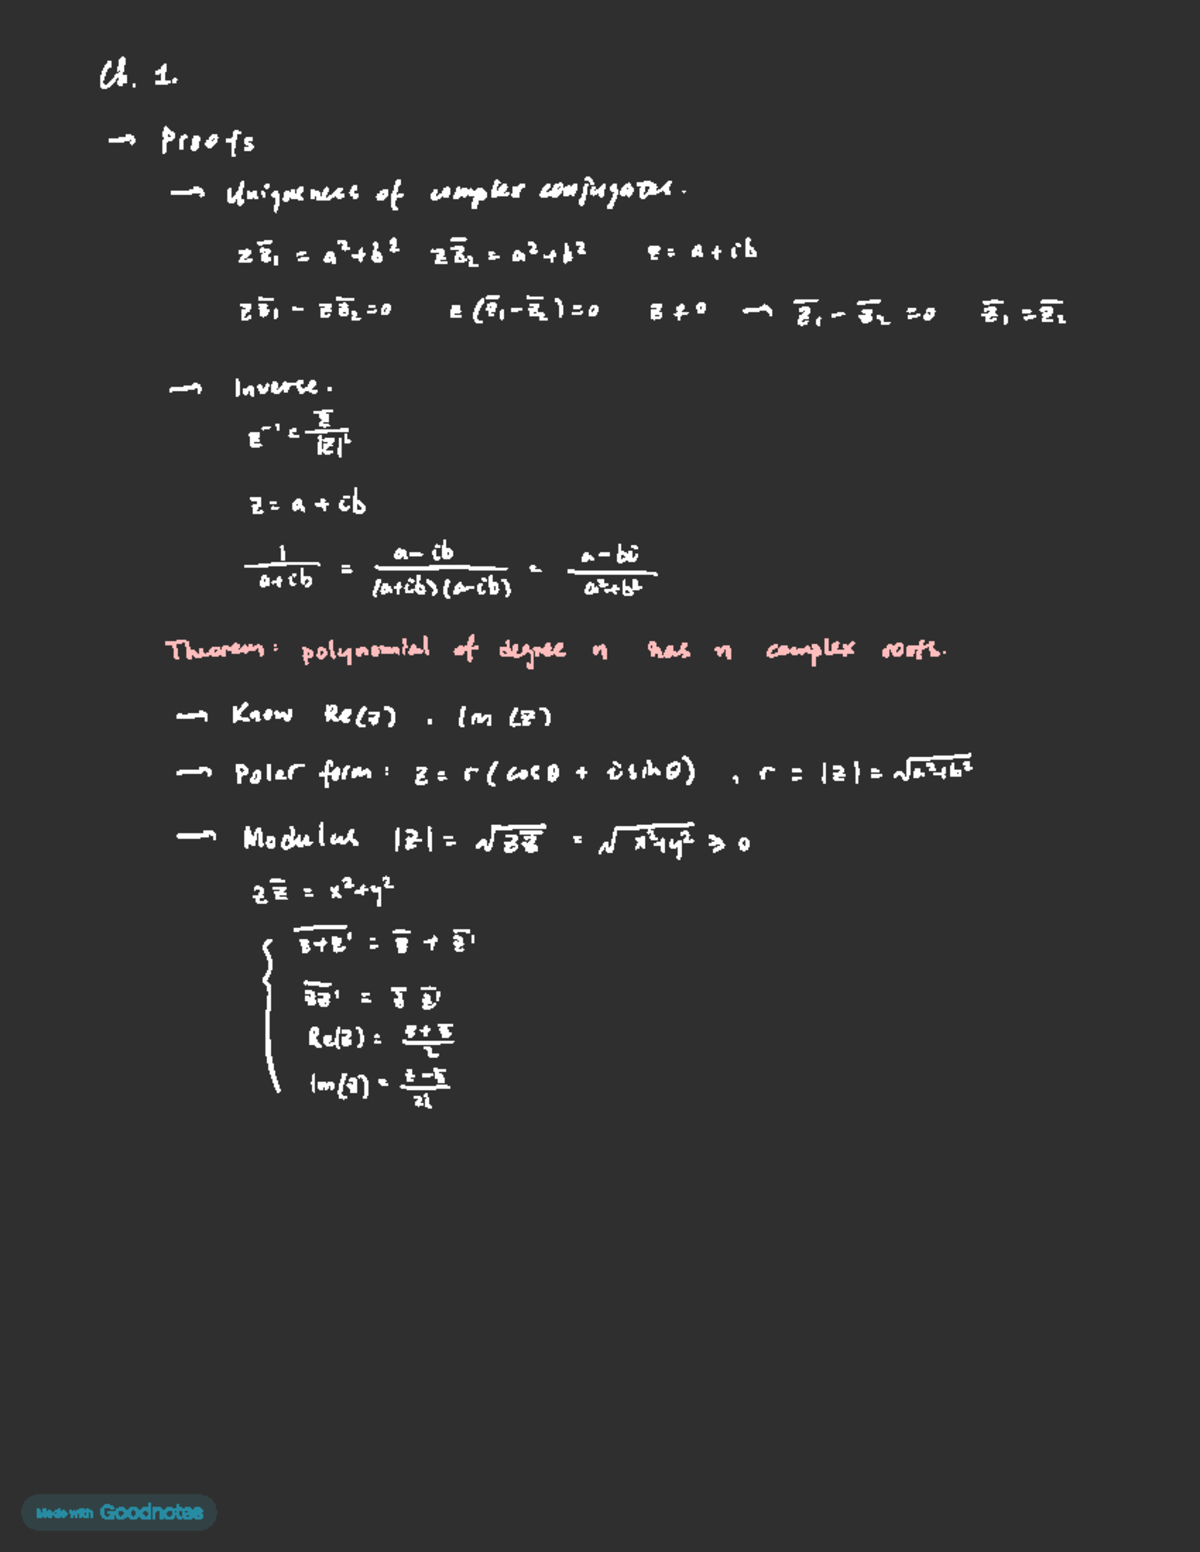 Ch. 1.
→ Proofs
→ Uniqueness of complex conjugates.
z z̄₁ = a²+b²   z z̄₂ = a²+b²   z = a + ib
z z̄₁ − z z̄₂ = 0   z (z̄₁ − z̄₂) = 0   z ≠ 0 → z̄₁ − z̄₂ = 0   z̄₁ = z̄₂
→ Inverse.
z⁻¹ = z̄ / |z|²
z = a + ib
1 / (a+ib) = (a − ib) / ((a+ib)(a−ib)) = (a − bi) / (a²+b²)
Theorem: polynomial of degree n has n complex roots.
→ Know Re(z) . Im (z)
→ Polar form: z = r ( cos θ + i sin θ) , r = |z| = √(a²+b²)
→ Modulus |z| = √(z z̄) = √(x²+y²) ⩾ 0
z z̄ = x²+y²
{ \overline{z+z'} = z̄ + z̄'
\overline{zz'} = z̄ z̄'
Re(z) = (z + z̄) / 2
Im(z) = (z − z̄) / 2i
Made with Goodnotes